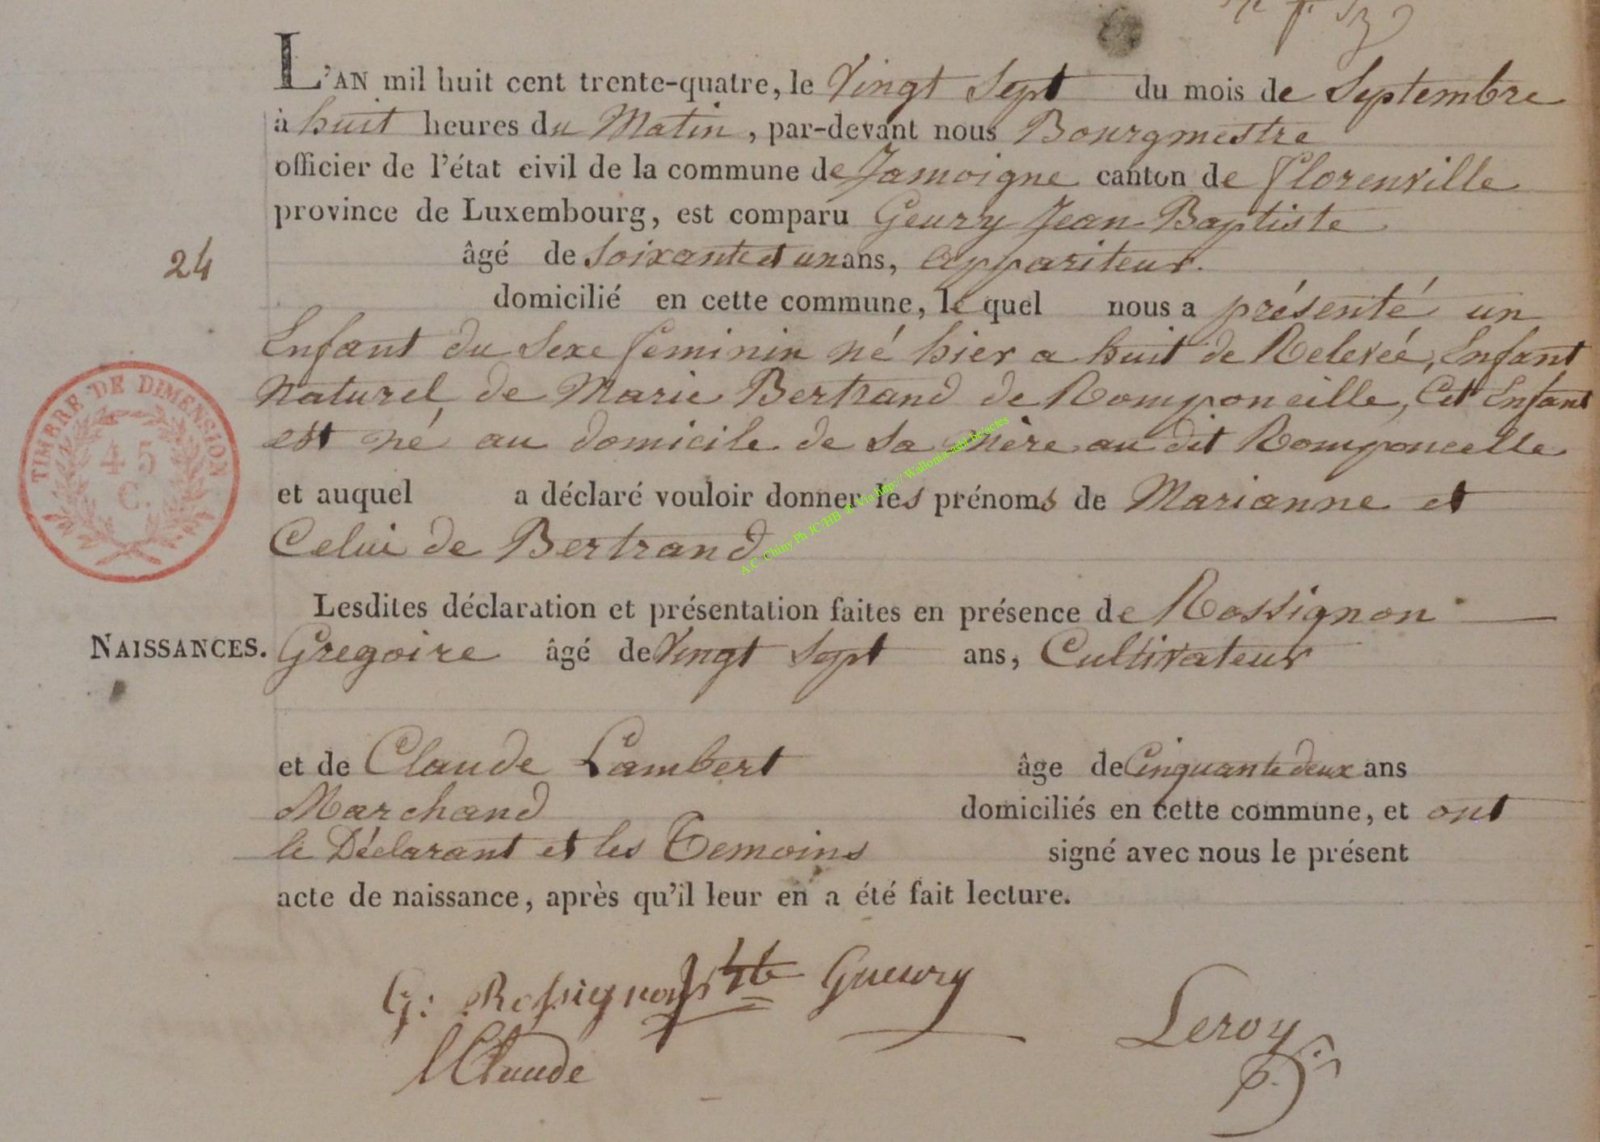 L'AN mil huit cent trente-quatre, le Vingt Sept du mois de Septembre
à huit heures du Matin, par-devant nous Bourgmestre
officier de l'état civil de la commune de Jamoigne canton de Florenville
province de Luxembourg, est comparu Geurry Jean-Baptiste
24
âgé de Soixante et un ans, appariteur.
domicilié en cette commune, le quel nous a présenté un
Enfant du Sexe feminin né hier a huit de Relevée, Enfant
Naturel de Marie Bertrand de Romponcille, Cet Enfant
est né au domicile de Sa Mère au dit Romponcelle
TIMBRE DE DIMENSION
45
C.
et auquel a déclaré vouloir donner les prénoms de Marianne et
Celui de Bertrand
A.C. Chiny Ph JC HB
Lesdites déclaration et présentation faites en présence de Rossignon
NAISSANCES. Gregoire âgé de Vingt Sept ans, Cultivateur
et de Claude Lambert âge de Cinquante deux ans
Marchand domiciliés en cette commune, et ont
le Déclarant et les Temoins signé avec nous le présent
acte de naissance, après qu'il leur en a été fait lecture.
G: Rossignon J Bte Gueury
LClaude
Leroy